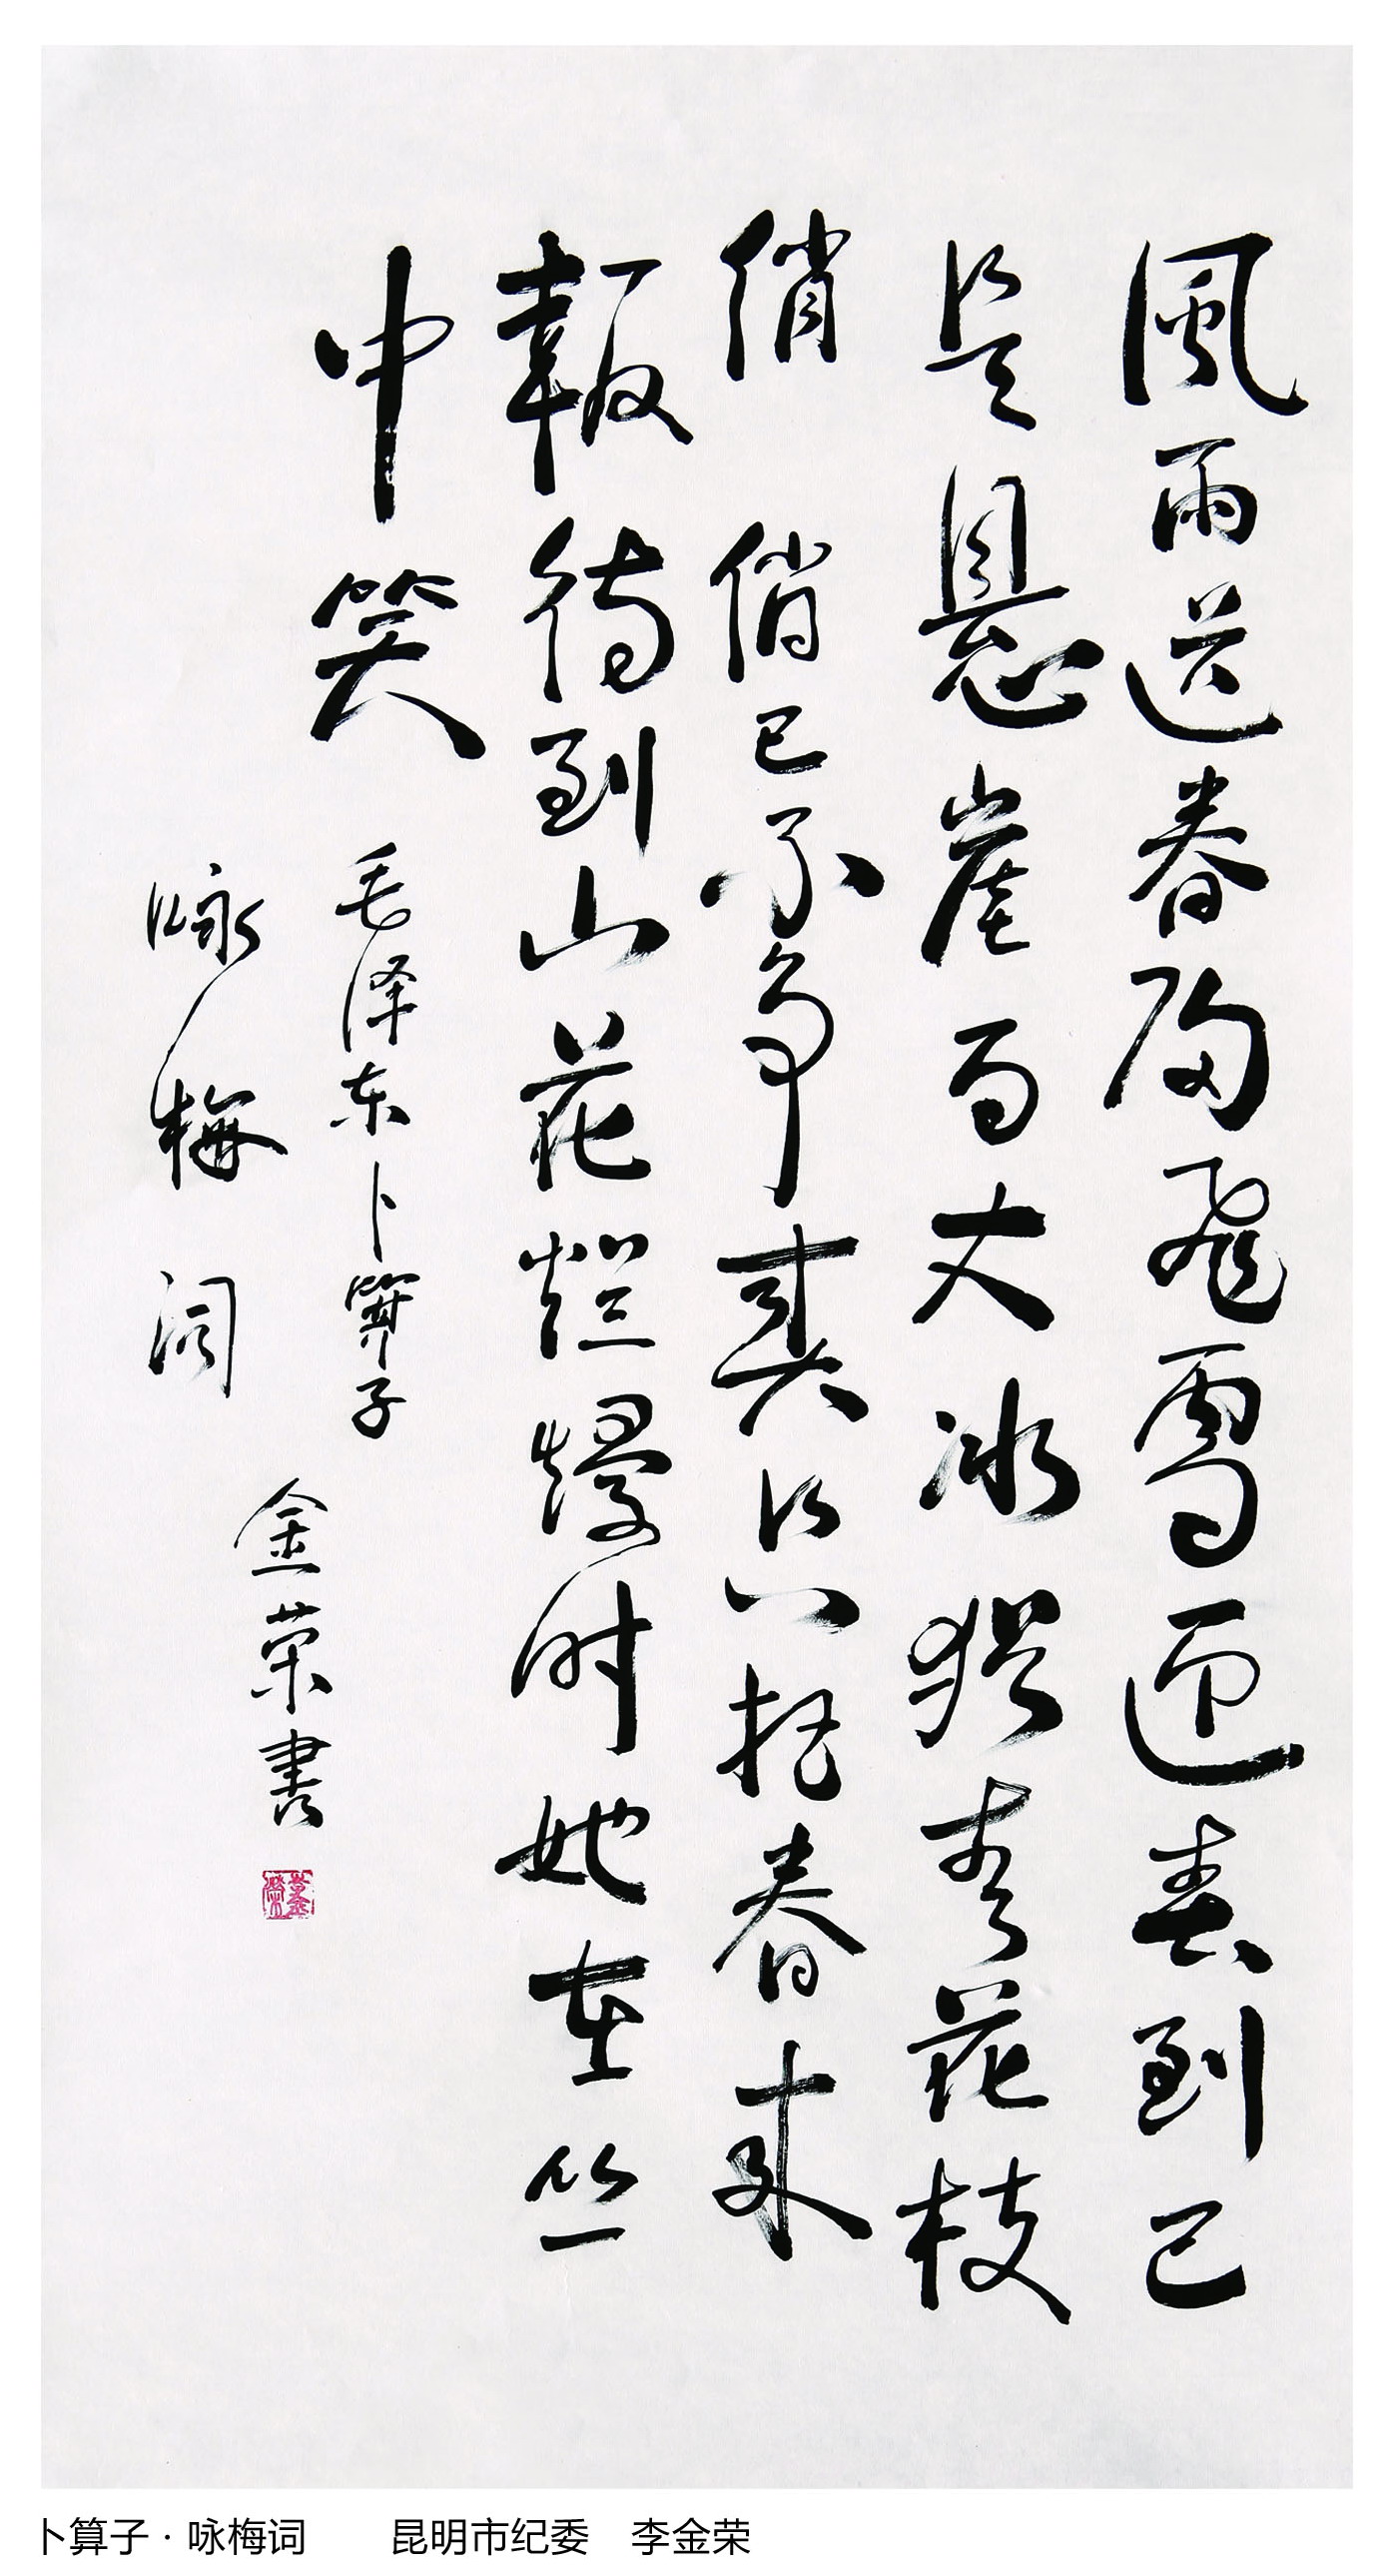 風雨送春歸飛雪迎春到已
是懸崖百丈冰猶有花枝
俏俏已不争春只把春来
報待到山花爛熳时她在丛
中笑
毛泽东卜算子
咏梅词
金荣書
卜算子·咏梅词 昆明市纪委 李金荣